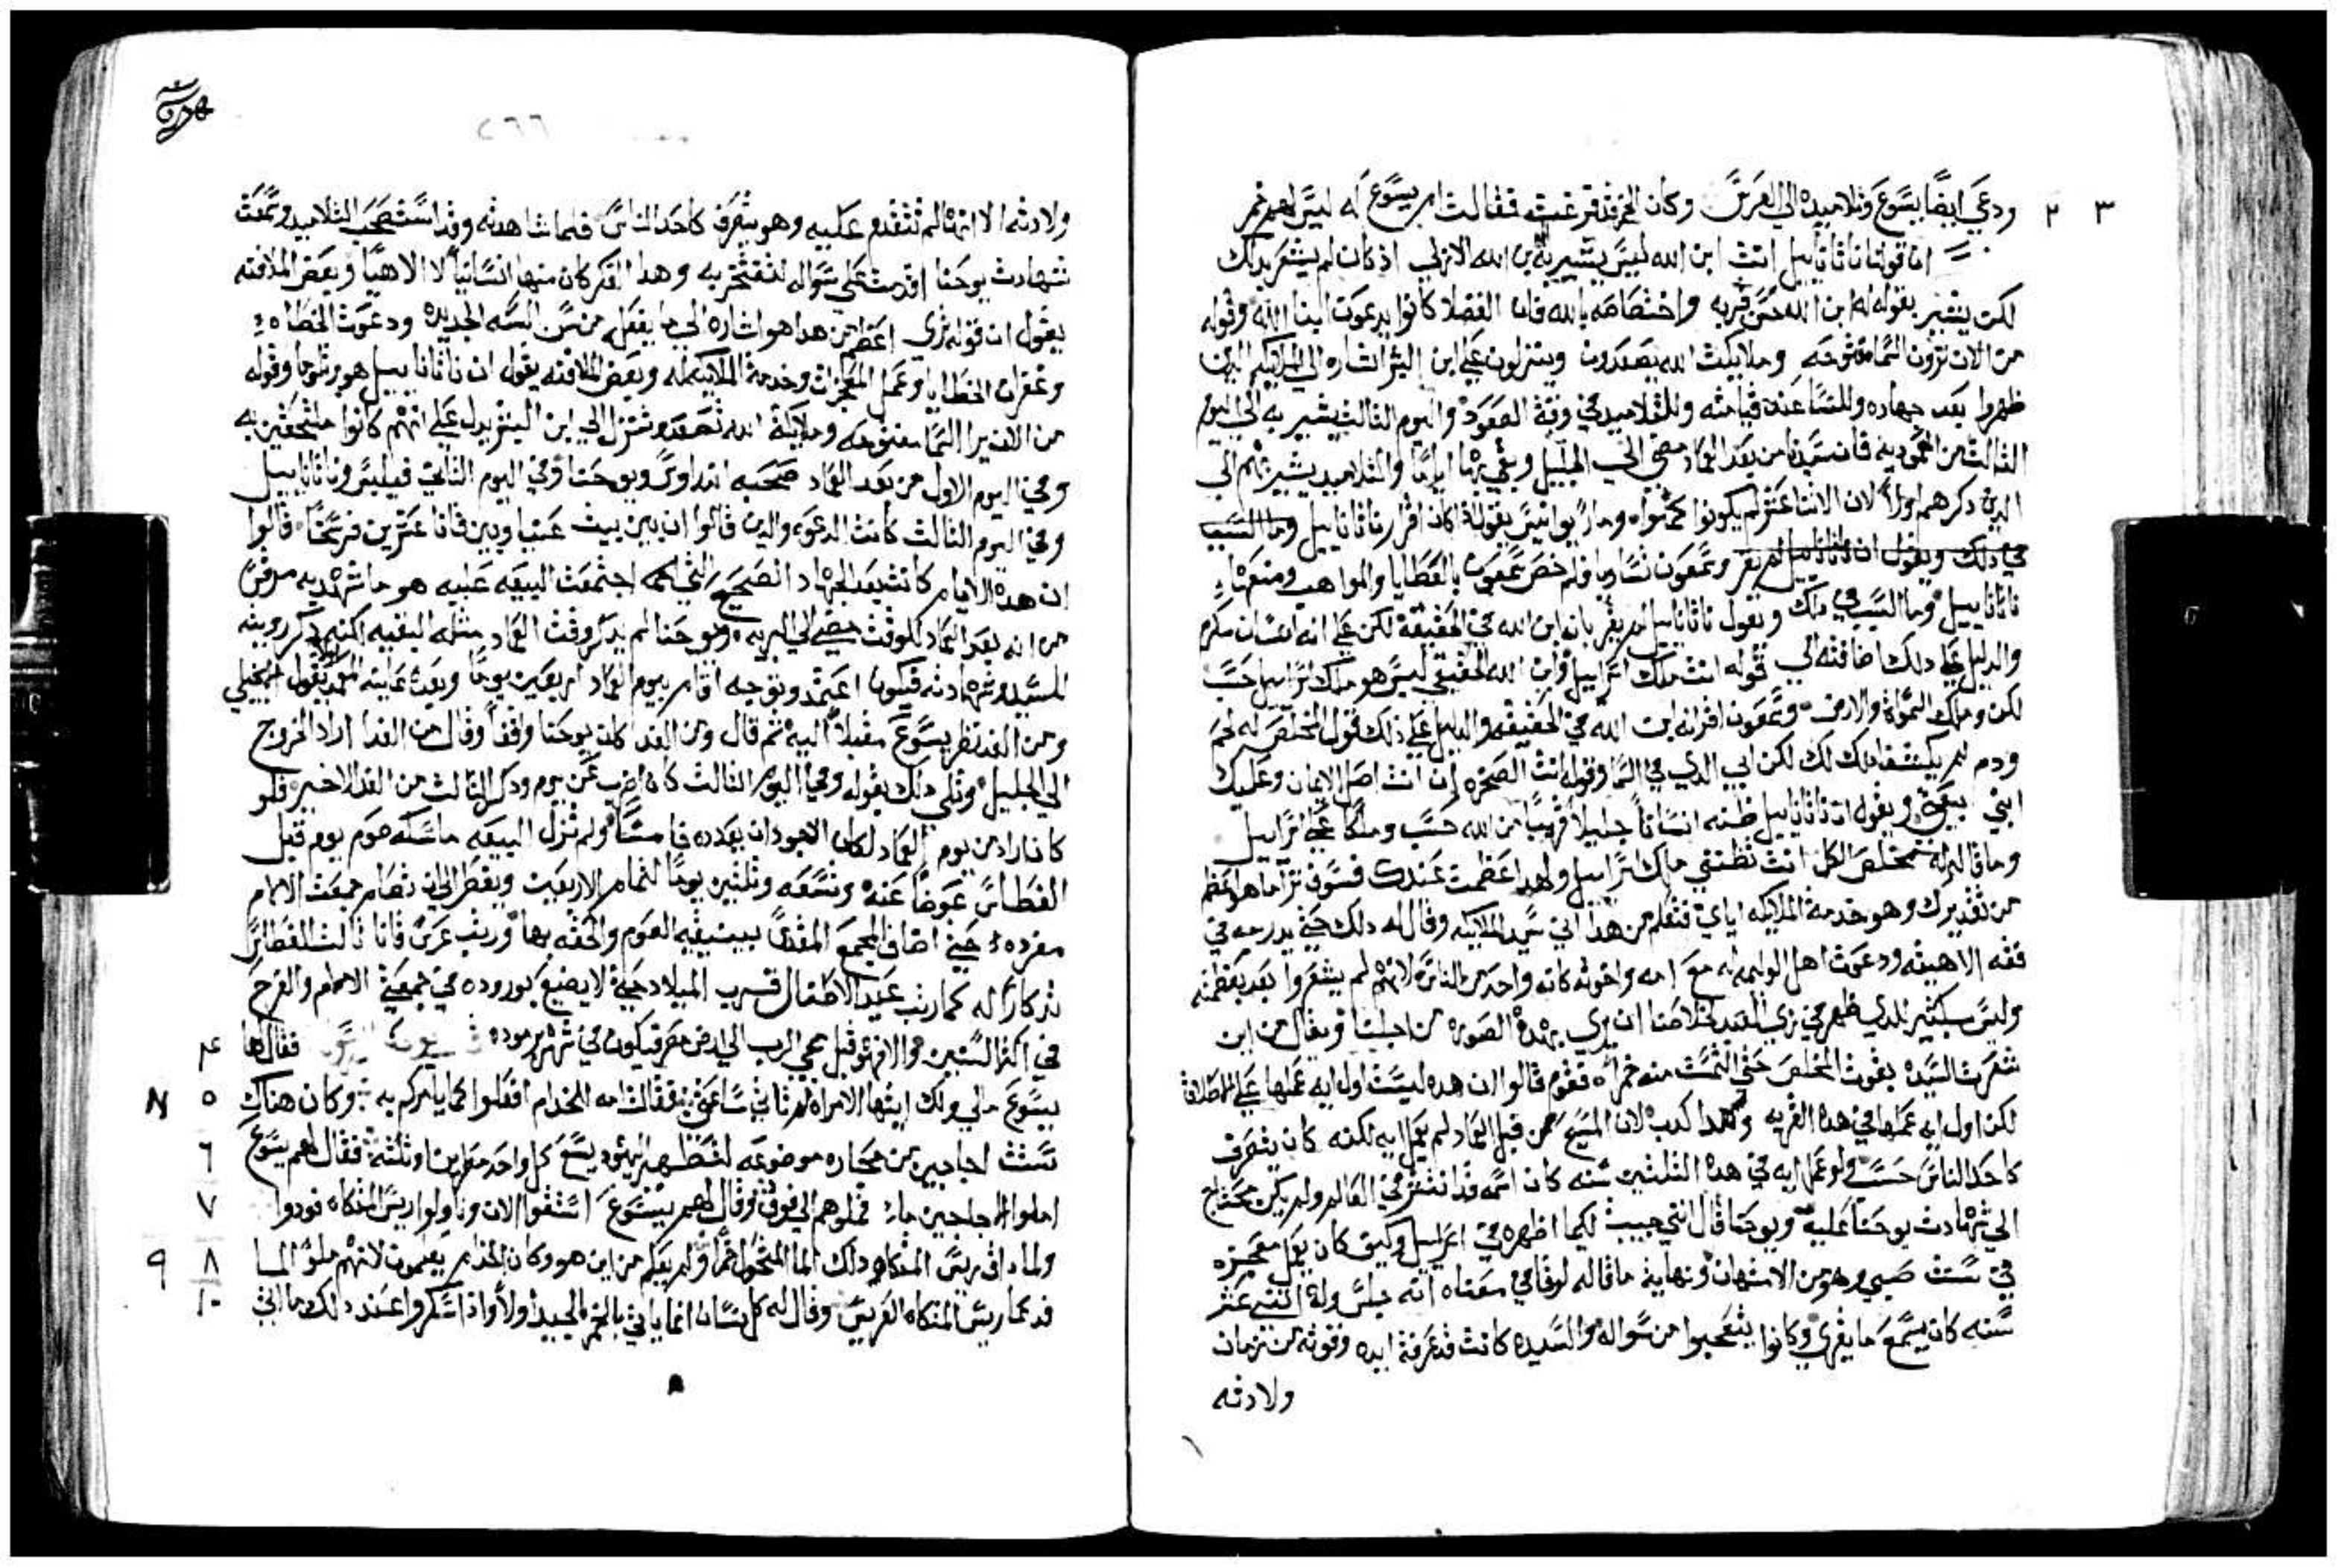 ٣ ٢ ودعي ايضًا يسوع وتلاميده الي العرس وكان الخمر قد فرغت فقالت ام يسوع له ليس لهم خمر
اما قول ناثانابيل انت ابن الله ليس يشير به ابن الله الازلي اذ كان لم يشعر بدلك
لكن يشير بقوله له ابن الله حسن قربه واختصاصه بالله فان الفضلا كانوا يدعوت ابنا الله وقوله
من الان ترون السما مفتوحه وملايكت الله يصعدون وينزلون علي ابن البشر اشاره الي الملايكه الدين
ظهروا بعد جهاده وللنسا عند قيامته وللتلاميد في وقة الصعود واليوم الثالث يشير به الي اليوم
الثالث من المعموديه فان سيدنا من بعد العماد مضي الي الجليل وبقي بها اياما والتلاميد يشير بهم الي
الدين دكرهم اولا لان الاثنا عشر لم يكونوا كملوا وماري يوانيس بقوله كان اقرار ناثانابيل وما السبب
في دلك ويقول ان ناثانابيل لم يقر وسمعون تساويا فلم خص سمعون بالعطايا والمواهب ومنعها
ناثانابيل وما السبب في دلك ويقول ناثانابيل لم يقر بانه ابن الله في الحقيقة لكن علي انه انسان مكرم
والدليل علي دلك اضافته الي قوله انت ملك اسراييل وابن الله الحقيقي ليس هو ملك اسراييل حسب
لكن وملك السماة والارض وسمعون اقر انه ابن الله في الحقيقه والدليل علي ذلك قول المخلص له لحم
ودم لم يكشفا دلك لك لكن ابي الدي في السما وقوله انت الصخره ان انت اصل الايمان وعليك
ابني بيعتي ويقول ان ناثانابيل ظنه انسانًا جليلًا قريبًا من الله حسب وملكًا علي اسراييل
وما قال له مخلص الكل انت تظنني ملك اسراييل ولهدا عظمت عندك فسوف ترا ما هو اعظم
من تقديرك وهو خدمة الملايكه اياي فتعلم من هدا اني سيد الملايكه وقال له دلك حتي يدرجه في
فقه الاهيته ودعوت اهل الوليمه له مع امه واخوته كانه واحد من الناس لانهم لم يشعروا بعد بعظمته
وليس بكثير للدي ظهر في زي العبد لخلاصنا ان يري بهدة الصوره من اجلنا ويقال من اين
شعرت السيده بقوت المخلص حتي التمست منه خمراً فقوم قالوا ان هده ليست اول ايه عملها علي الاطلاق
لكن اول ايه عملها في هده القريه وهدا كدب لان المسيح من قبل العماد لم يعمل ايه لكنه كان يتصرف
كاحد الناس حسب ولو عمل ايه في هدة الثلثين سنه كان اسمه قد انتشر في العالم ولم يكن محتاج
الي شهادت يوحنا عليه ويوحنا قال انني جيت لكيما اظهره في اسراييل وكيف كان يعمل معجزه
في سنت صبي وهو من الامتهان ونهاية ما قاله لوقا في معناه انه جلس وله اثني عشر
سنه كان يسمع ما يقري وكانوا يتعجبوا من سواله والسيده كانت قد عرفة ايده وقوته من زمان
ولادته
٢٦٦
ولادته الا انها لم تتقدم عليه وهو يتصرف كاحد الناس فلما شاهدته وقد استصحب التلاميد وسمعت
شهادت يوحنا اقدمت علي سواله لتفتخر به وهدا الفكر كان منها انسانيًا لا الاهيًا وبعض الملافنه
يقول ان قوله تري اعظم من هدا هو اشاره الي ما يفعل من سن السنه الجديده ودعوت الخطاه
وغفران الخطايا وعمل المعجزات وخدمة الملايكه له وبعض الملافنه يقول ان ناثانابيل هو برتلوما وقوله
من الان ترا السما مفتوحه وملايكة الله تصعد وتنزل الي ابن البشر يدل علي انهم كانوا ملتحفين به
وفي اليوم الاول من بعد العماد صحبه اندراوس ويوحنا وفي اليوم الثاني فيلبس وناثانابيل
وفي اليوم الثالث كانت الدعوه والدين قالوا ان بين بيت عنيا وبين قانا عشرين فرسخًا قالوا
ان هدة الايام كانت بعد الجهاد الصحيح الدي اجتمعت البيعه عليه هو ما شهد به مرقس
من انه بعد العماد للوقت مضي الي البريه ويوحنا لم يدكر وقت العماد مثله البقيه لكنه دكر رويته
للسيد وشهادته فيكون اعتمد وتوجه اقام بيوم العماد اربعين يومًا وبعد غايته يقول الانجيلي
ومن الغد نظر يسوع مقبلًا اليه ثم قال ومن الغد كان يوحنا واقفًا وقال من الغد اراد الخروج
الي الجليل وتلي دلك بقوله وفي اليوم الثالث كان عرس يوم ودكر الثالث من الغد الاخير فلو
كان اراد من يوم العماد لكان الاجود ان يعدده خامسًا ولم تزل البيعه ماسكه صوم يوم قبل
الغطاس عوضًا عنه وتسعه وثلثين يومًا لتمام الاربعين وبغض الي ان تصام جمعت الالام
مفرده حتي اضاف المجمع المقدس بنيقيه الصوم والحقه بها ورتب عرس قانا ثالث الغطاس
تدكارًا له كما رتب عيد الاطفال قريب الميلاد حتي لا يضيع بوروده في جمعتي الالام والفرح
٤ في اكثر السنين والا فهو قبل مجي الرب الي ارض مصر فيكون في شهر برموده فقال لها
٥ يسوع مالي ولك ايتها الامراة لم تاتي ساعتي فقالت امه للخدام افعلوا كما يامركم به وكان هناك
٦ ستت اجاجين من حجاره موضوعه لتطهير اليهود يسع كل واحد مطرين او ثلثة فقال لهم يسوع
٧ املوا الاجاجين ماء فملوهم الي فوق وقال لهم يسوع استقوا الان وناولوا ريس المتكاه فودوا
٨ ٩ ولما داق ريس المتكاه دلك الما المتحول خمرًا ولم يعلم من اين هو وكان الخدام يعلمون لانهم ملو الما
١٠ فدعا ريس المتكاه العريس وقال له كل انسان انما ياتي بالخمر الجيد اولًا واذا سكروا عند دلك ياتي